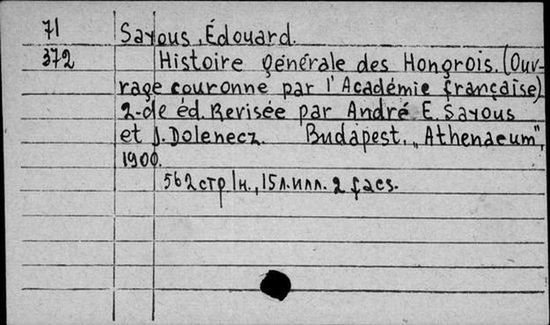 71 Sayous, Édouard.
372 Histoire générale des Hongrois. (Ouv-
rage couronne par l'Académie française)
2-de éd. Revisée par André E. Sayous
et J. Dolenecz. Budapest, „Athenaeum",
1900.
562 стр 1н., 15 л. илл. 2 facs.